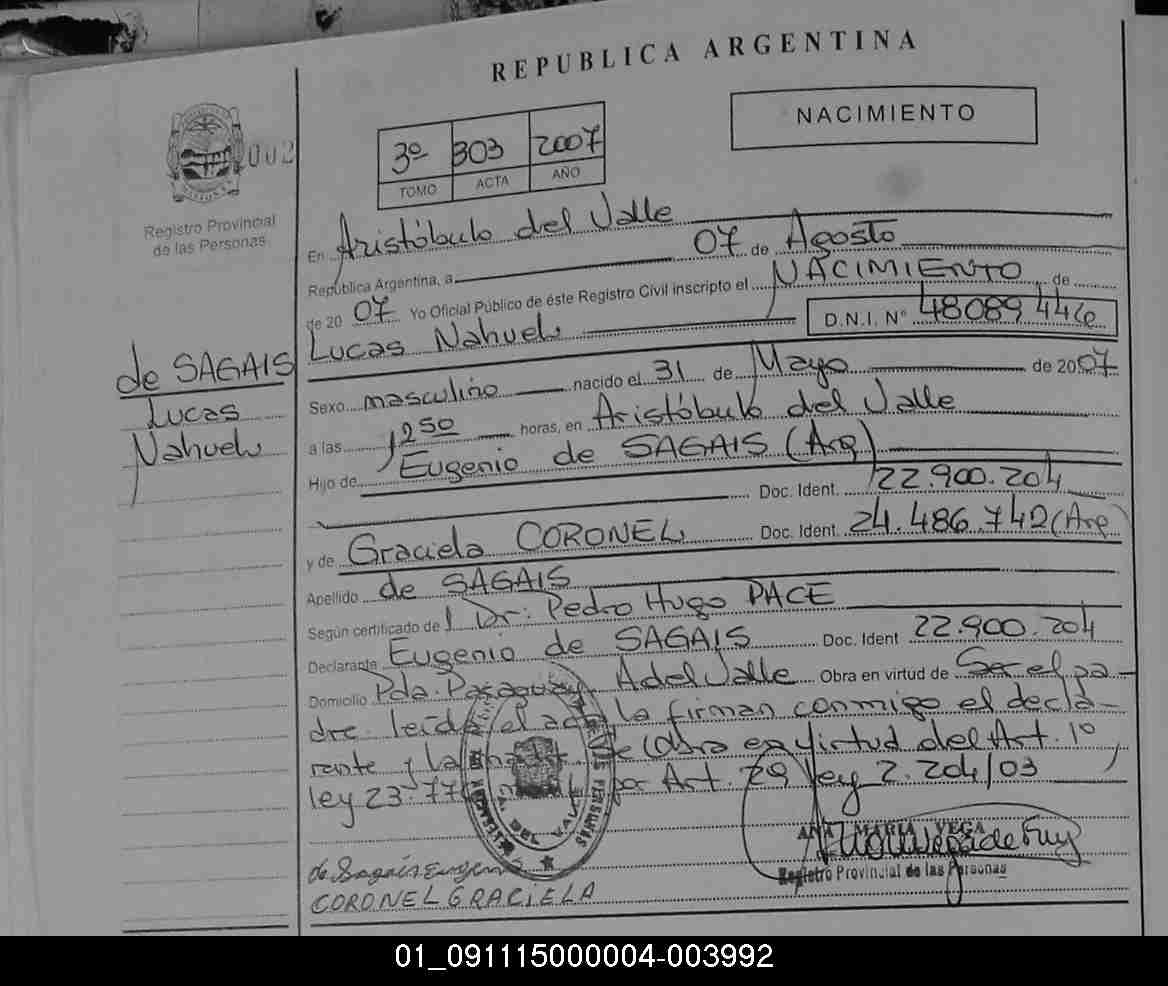 REPUBLICA ARGENTINA
NACIMIENTO
002
3º 303 2007
TOMO ACTA AÑO
Registro Provincial
de las Personas
En Aristóbulo del Valle
República Argentina, a 07 de Agosto
de 20 07 Yo Oficial Público de éste Registro Civil inscripto el NACIMIENTO de
Lucas Nahuel D.N.I. Nº 48089446
de SAGAIS
Lucas
Nahuel
Sexo masculino nacido el 31 de Mayo de 2007
a las 1250 horas, en Aristóbulo del Valle
Hijo de Eugenio de SAGAIS (Arg)
Doc. Ident. 22.900.204
y de Graciela CORONEL Doc. Ident. 24.486.742 (Arg)
Apellido de SAGAIS
Según certificado de Dr: Pedro Hugo PACE
Declarante Eugenio de SAGAIS Doc. Ident 22.900.204
Domicilio Pda. Paraguay A del Valle Obra en virtud de Ser el pa-
dre. leída el acta la firman conmigo el decla-
rante y la madre Obra en virtud del Art. 1º
ley 23.77 por Art. 29 ley 2.204/03
ANA MARIA VEGA
Registro Provincial de las Personas
de Sagais Eugenio
CORONEL GRACIELA
01_091115000004-003992